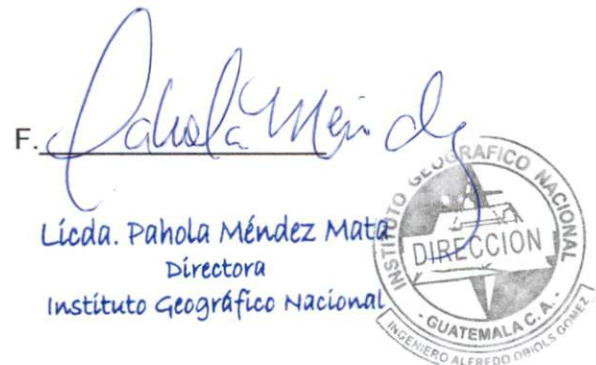 F. Pahola Méndez
Licda. Pahola Méndez Mata
Directora
Instituto Geográfico Nacional
INSTITUTO GEOGRAFICO NACIONAL
DIRECCION
- GUATEMALA C. A. -
INGENIERO ALFREDO OBIOLS GOMEZ